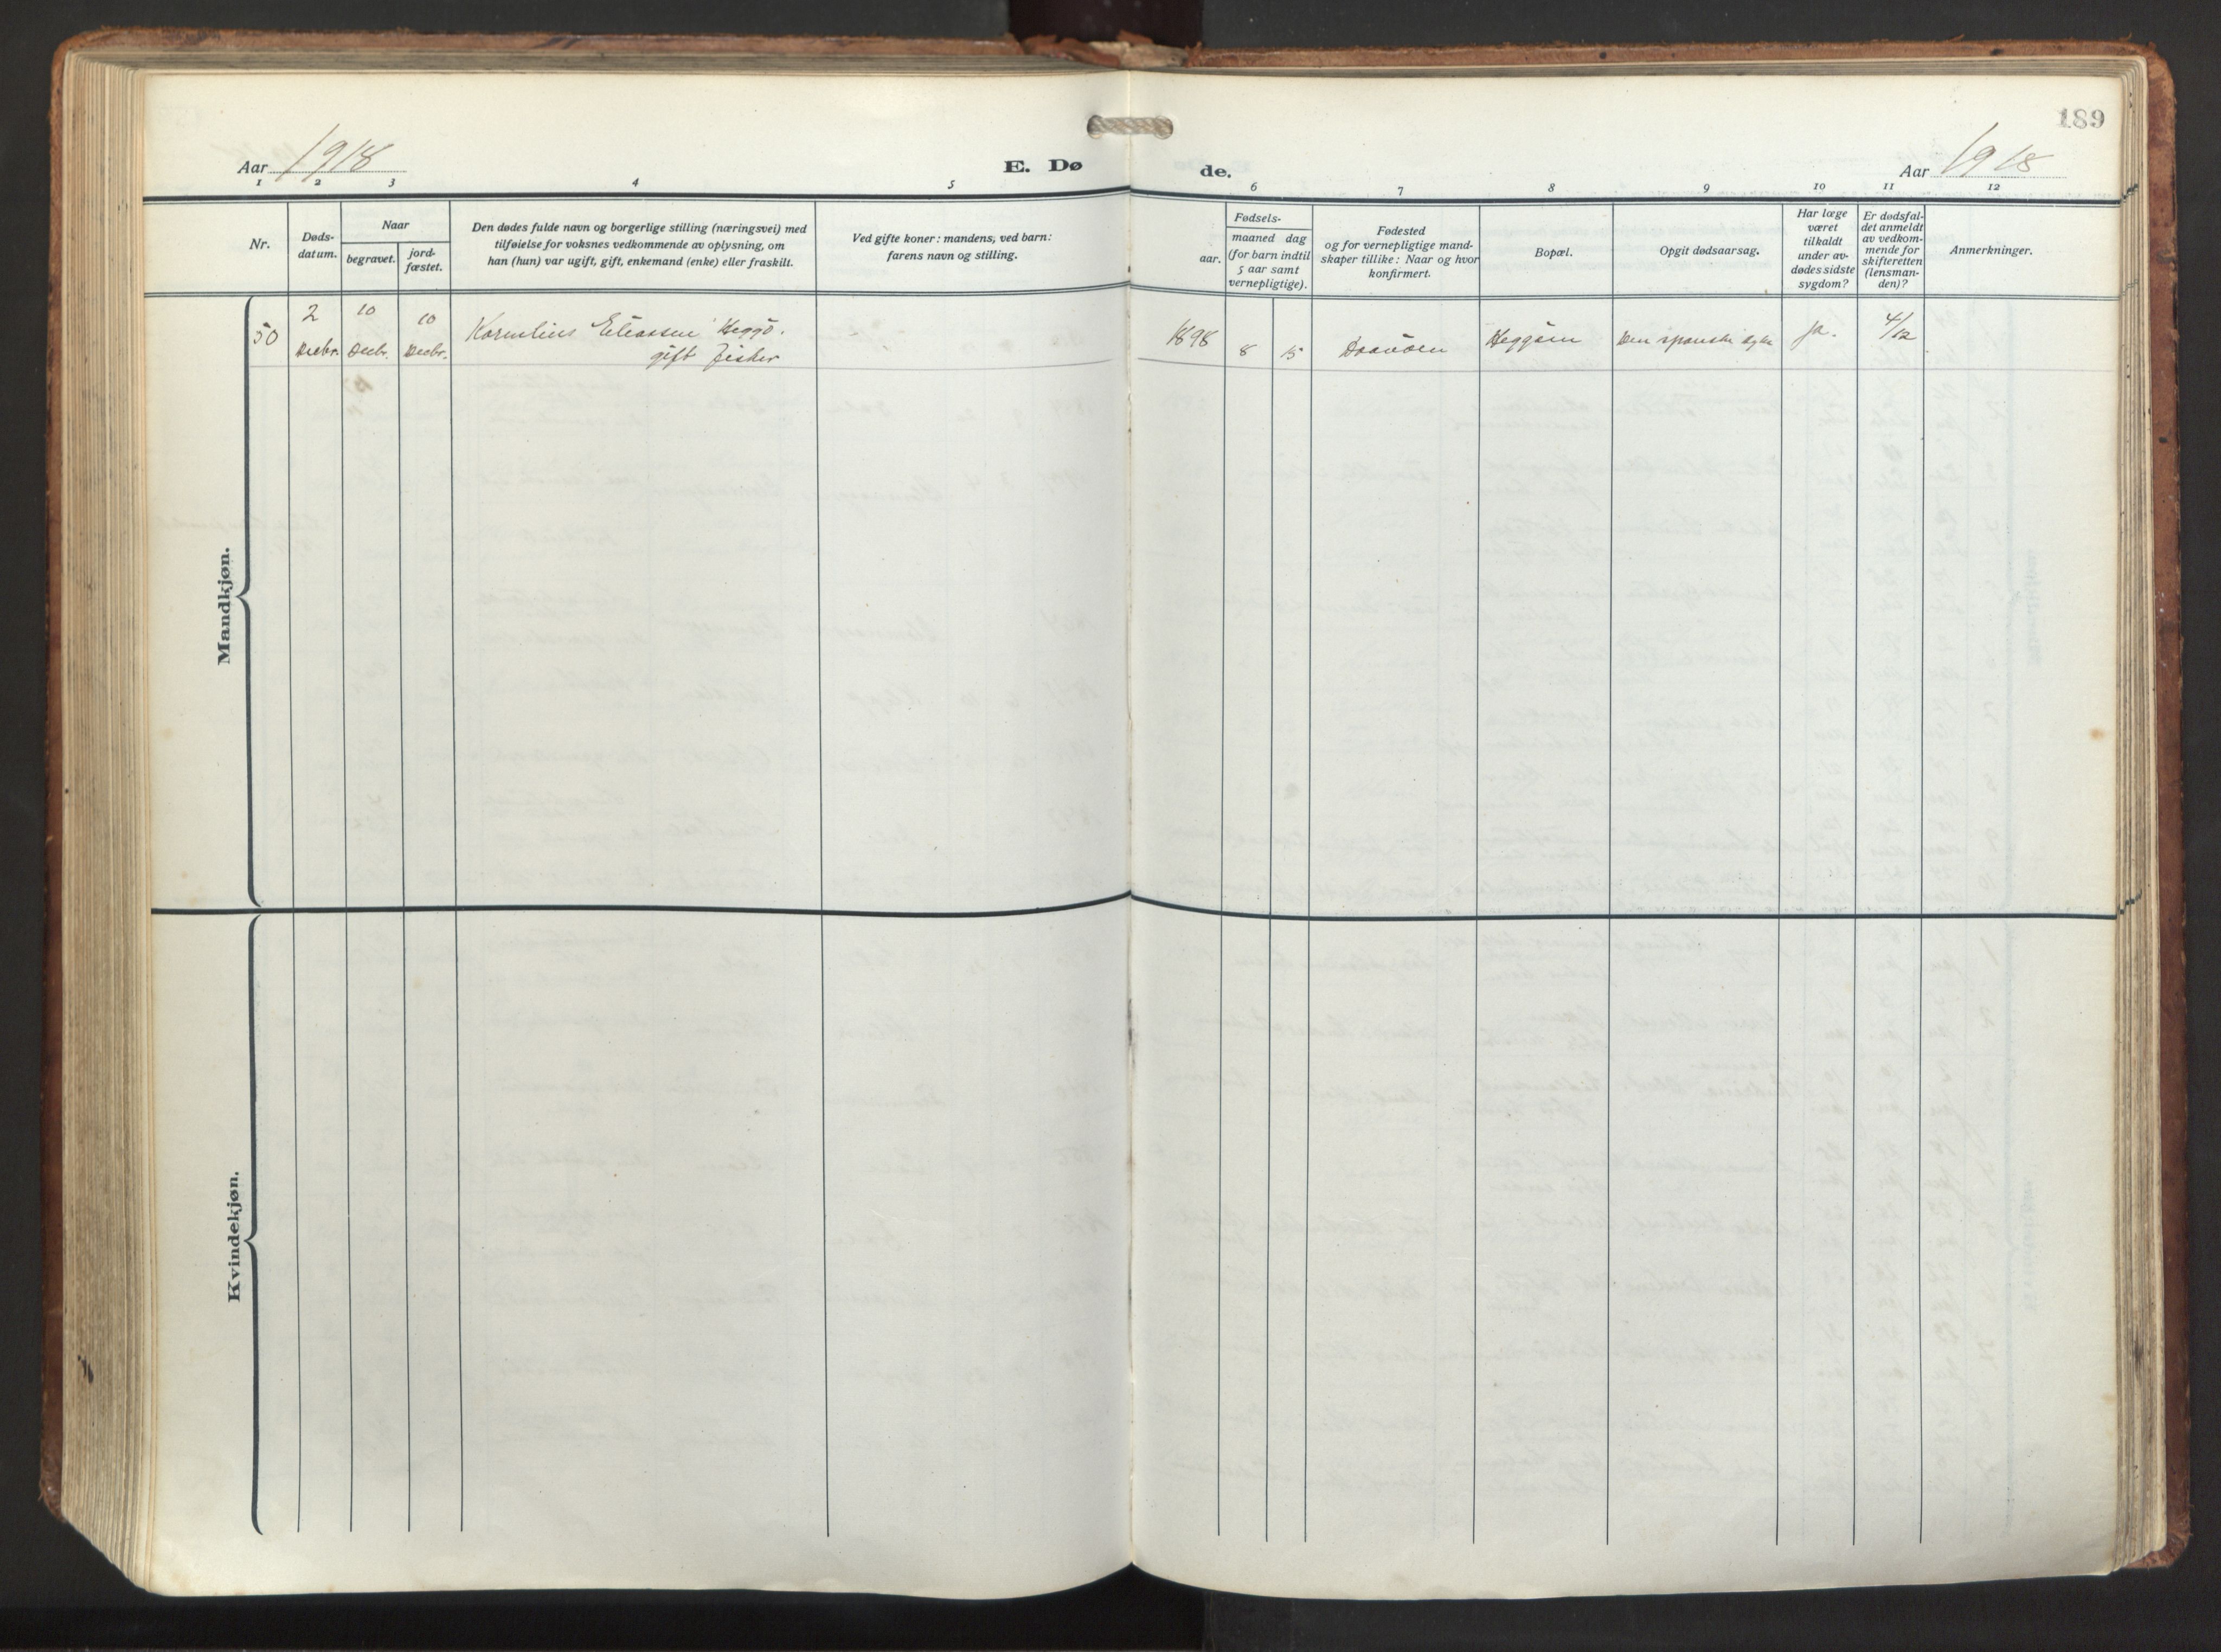 189
Aar 1918
E. Dø
de.
Aar 1918
1 2 3 4 5 6 7 8 9 10 11 12
Nr.
Døds-
datum.
Naar
begravet.
jord-
fæstet.
Den dødes fulde navn og borgerlige stilling (næringsvei) med
tilføielse for voksnes vedkommende av oplysning, om
han (hun) var ugift, gift, enkemand (enke) eller fraskilt.
Ved gifte koner: mandens, ved barn:
farens navn og stilling.
Fødsels-
aar.
maaned dag
(for barn indtil
5 aar samt
vernepligtige).
Fødested
og for vernepligtige mand-
skaper tillike: Naar og hvor
konfirmert.
Bopæl.
Opgit dødsaarsag.
Har læge
været
tilkaldt
under av-
dødes sidste
sygdom?
Er dødsfal-
det anmeldt
av vedkom-
mende for
skifteretten
(lensman-
den)?
Anmerkninger.
50
2
Decbr.
10
Decbr.
10
Decbr.
Kornelius Eliassen Heggø.
gift fisker
1898
8
15
Heggøen
Den spanske syke
ja.
4/12
Mandkjøn.
Kvindekjøn.